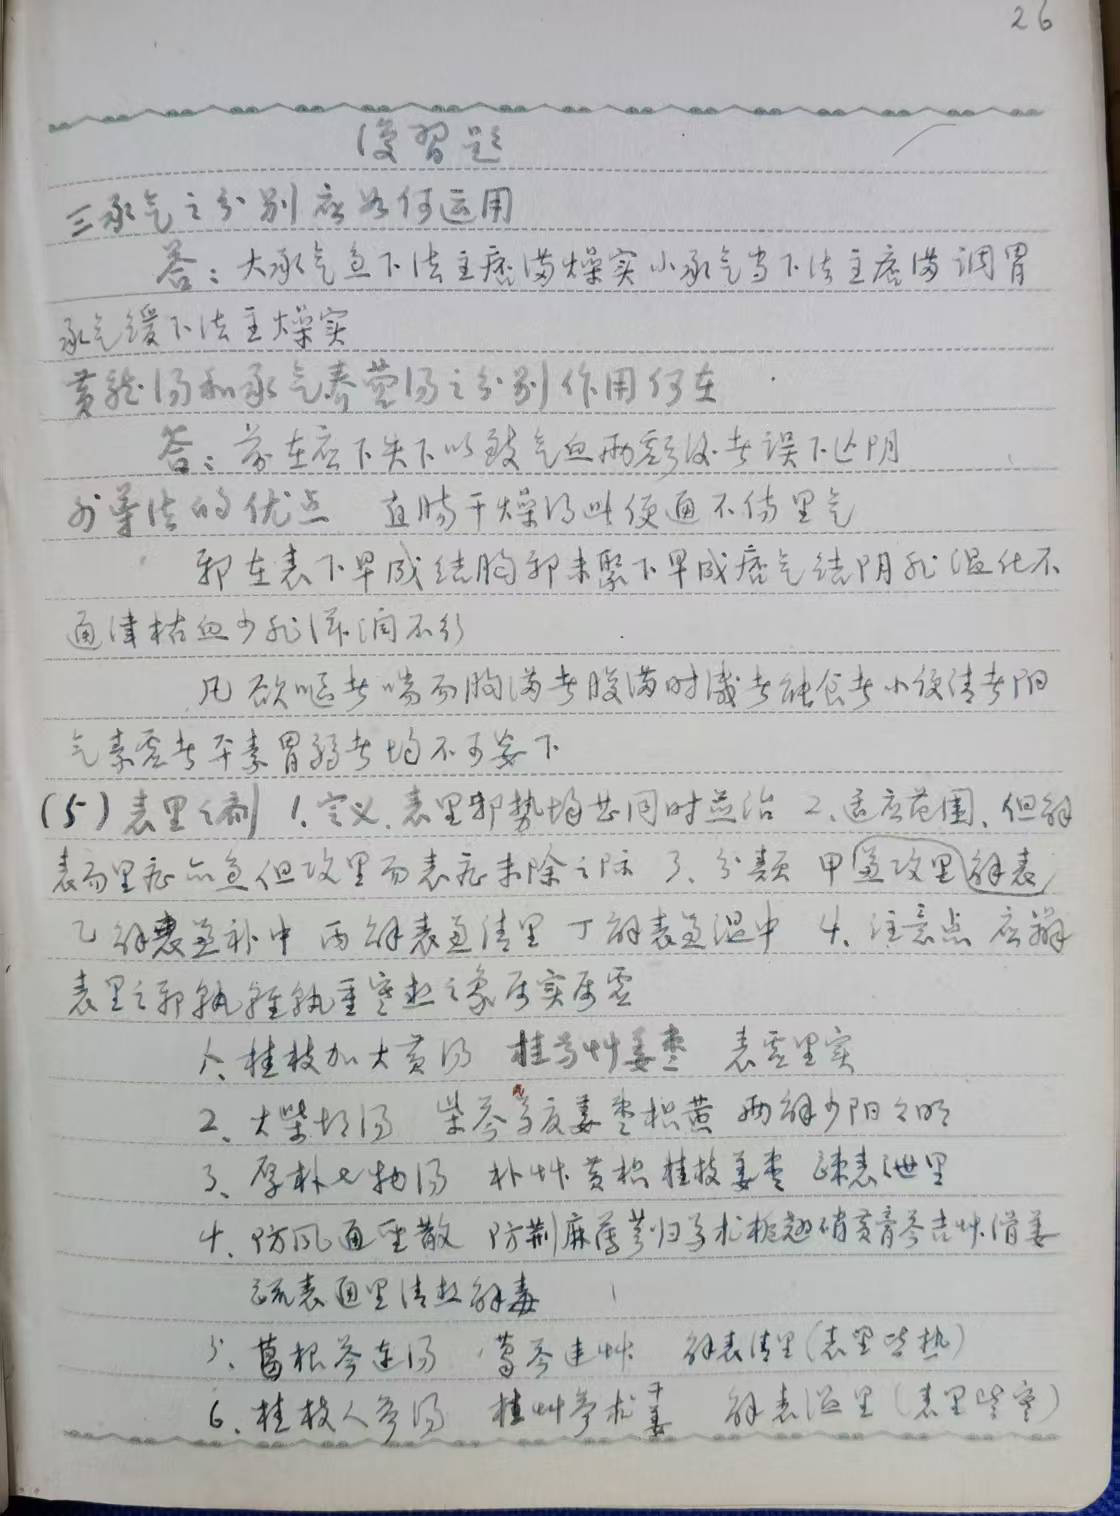 26
復習题
三承气之分别应如何运用
答：大承气急下法主痞满燥实小承气当下法主痞满调胃
承气缓下法主燥实
黄龙汤和承气养营汤之分别作用何在
答：前在应下失下以致气血两亏後者误下亡阴
外导法的优点 直肠干燥得此便通不伤里气
邪在表下早成结胸邪未聚下早成痞气结阴非温化不
通津枯血少非滋润不行
凡欲呕者喘而胸满者腹满时减者能食者小便清者阳
气素虚者平素胃弱者均不可妄下
(5)表里之剂 1、定义、表里邪势均甚同时并治 2、适应范围、但解
表而里症亦急但攻里而表症未除之际 3、分类 甲兼攻里解表
乙解表兼补中 丙解表兼清里 丁解表兼温中 4、注意点 应辨
表里之邪孰轻孰重寒热之象属实属虚
1、桂枝加大黄汤 桂芍艸姜枣 表虚里实
2、大柴胡汤 柴芩芍夏姜枣枳黄 两解少阳々明
3、厚朴七物汤 朴艸黄枳桂枝姜枣 疏表泄里
4、防风通圣散 防荆麻薄芎归芍术栀翘硝黄膏芩吉艸滑姜
疏表通里清热解毒
5、葛根芩连汤 葛芩连艸 解表清里(表里皆热)
6、桂枝人参汤 桂艸参术干姜 解表温里(表里皆寒)